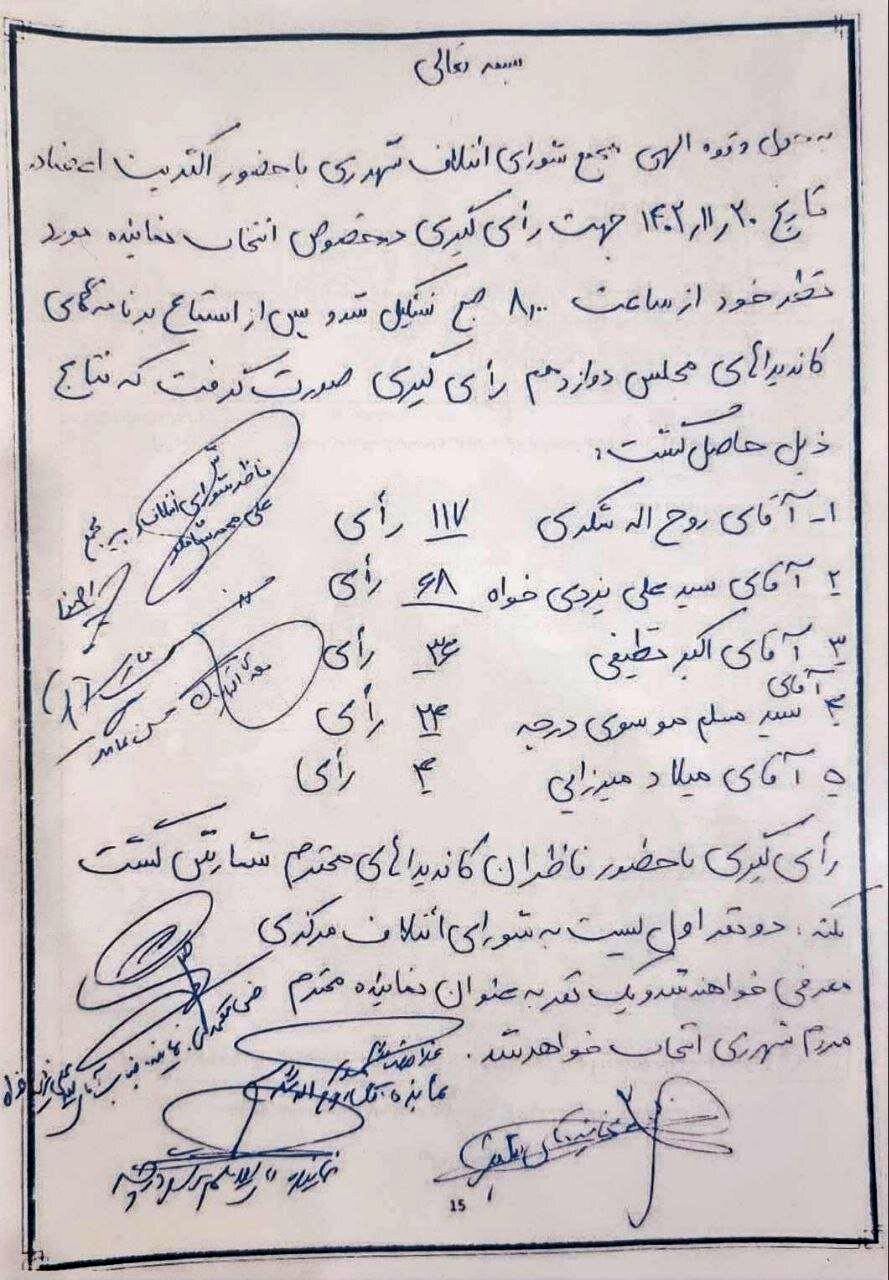 بسمه تعالی
به حول و قوه الهی مجمع شورای ائتلاف شهرری با حضور اکثریت اعضاء در
تاریخ ۱۴۰۲٫۱۱٫۲۰ جهت رأی گیری در خصوص انتخاب نماینده مورد
نظر خود از ساعت ۸٫۰۰ صبح تشکیل شد و پس از استماع برنامه های
کاندیداهای مجلس دوازدهم رأی گیری صورت گرفت که نتایج
ذیل حاصل گشت:
۱- آقای روح اله شکری ۱۱۷ رأی
۲ آقای سید علی یزدی خواه ۶۸ رأی
۳ آقای اکبر نظیفی ۳۶ رأی
۴ آقای سید مسلم موسوی درچه ۲۴ رأی
۵ آقای میلاد میرزایی ۴ رأی
ناظر شورای ائتلاف
رأی گیری با حضور ناظران کاندیداهای محترم شمارش گشت
نکته: دو نفر اول لیست به شورای ائتلاف مرکزی
معرفی خواهند شد و یک نفر به عنوان نماینده محترم
مردم شهرری انتخاب خواهد شد.
15